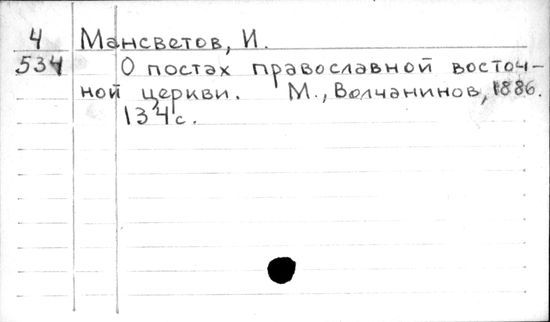 4 Мансветов, И.
534 О постах православной восточ-
ной церкви. М., Волчанинов, 1886.
134 с.